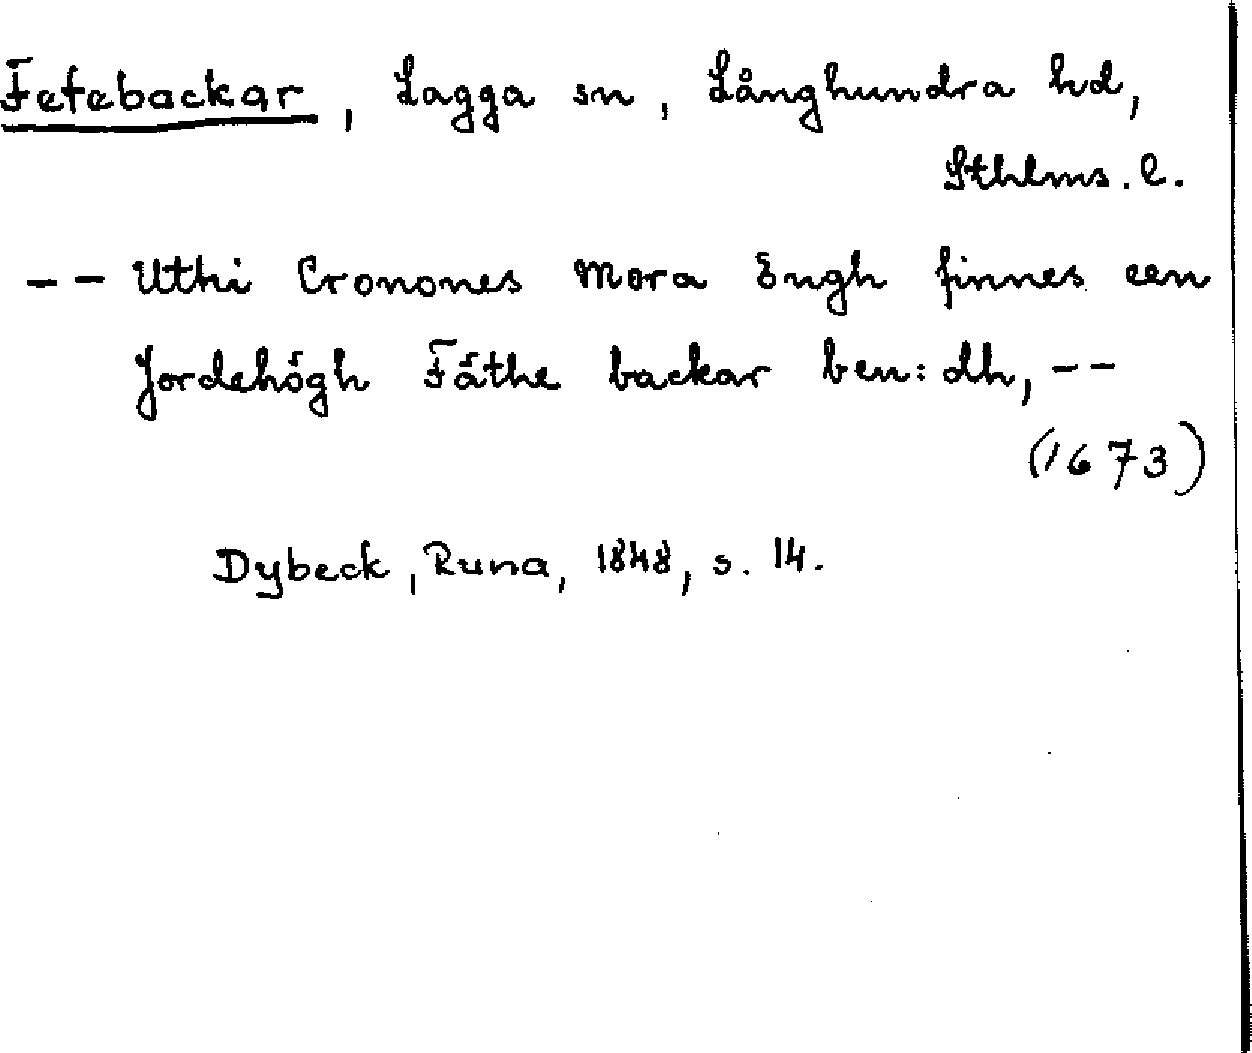 Fetebackar, Lagga sn, Långhundra hd,
Sthlms. l.
-- Uthi Cronones Mora Engh finnes een
Jordehögh Fäthe backar ben:dh, --
(1673)
Dybeck, Runa, 1848, s. 14.